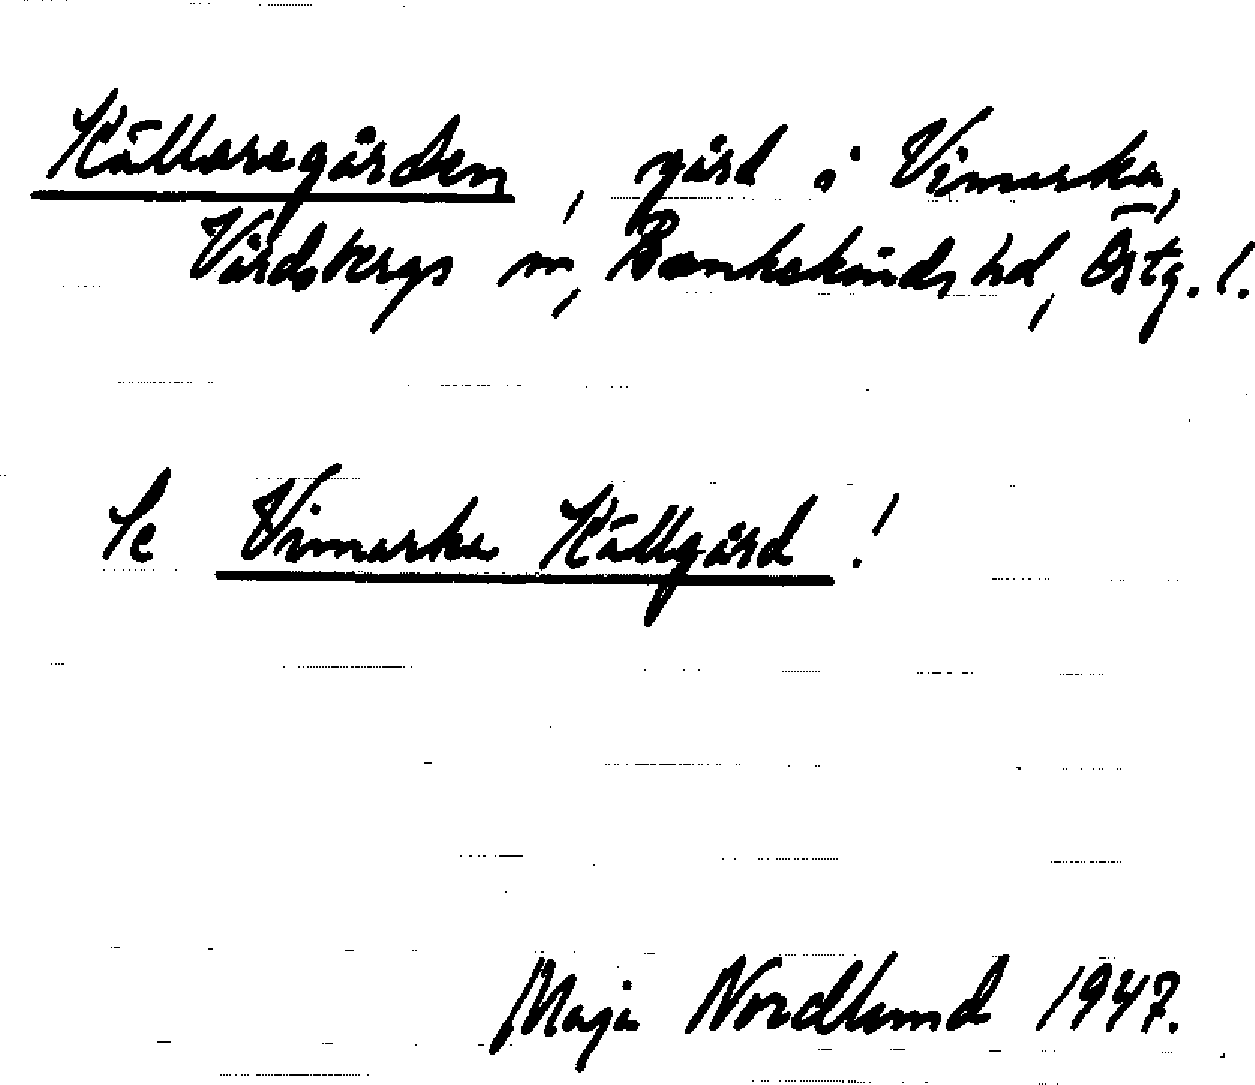 Källaregården, gård i Vimarka,
Vårdsbergs sn, Bankekinds hd, Östg. l.
Se Vimarka Källgård!
Maja Nordlund 1947.